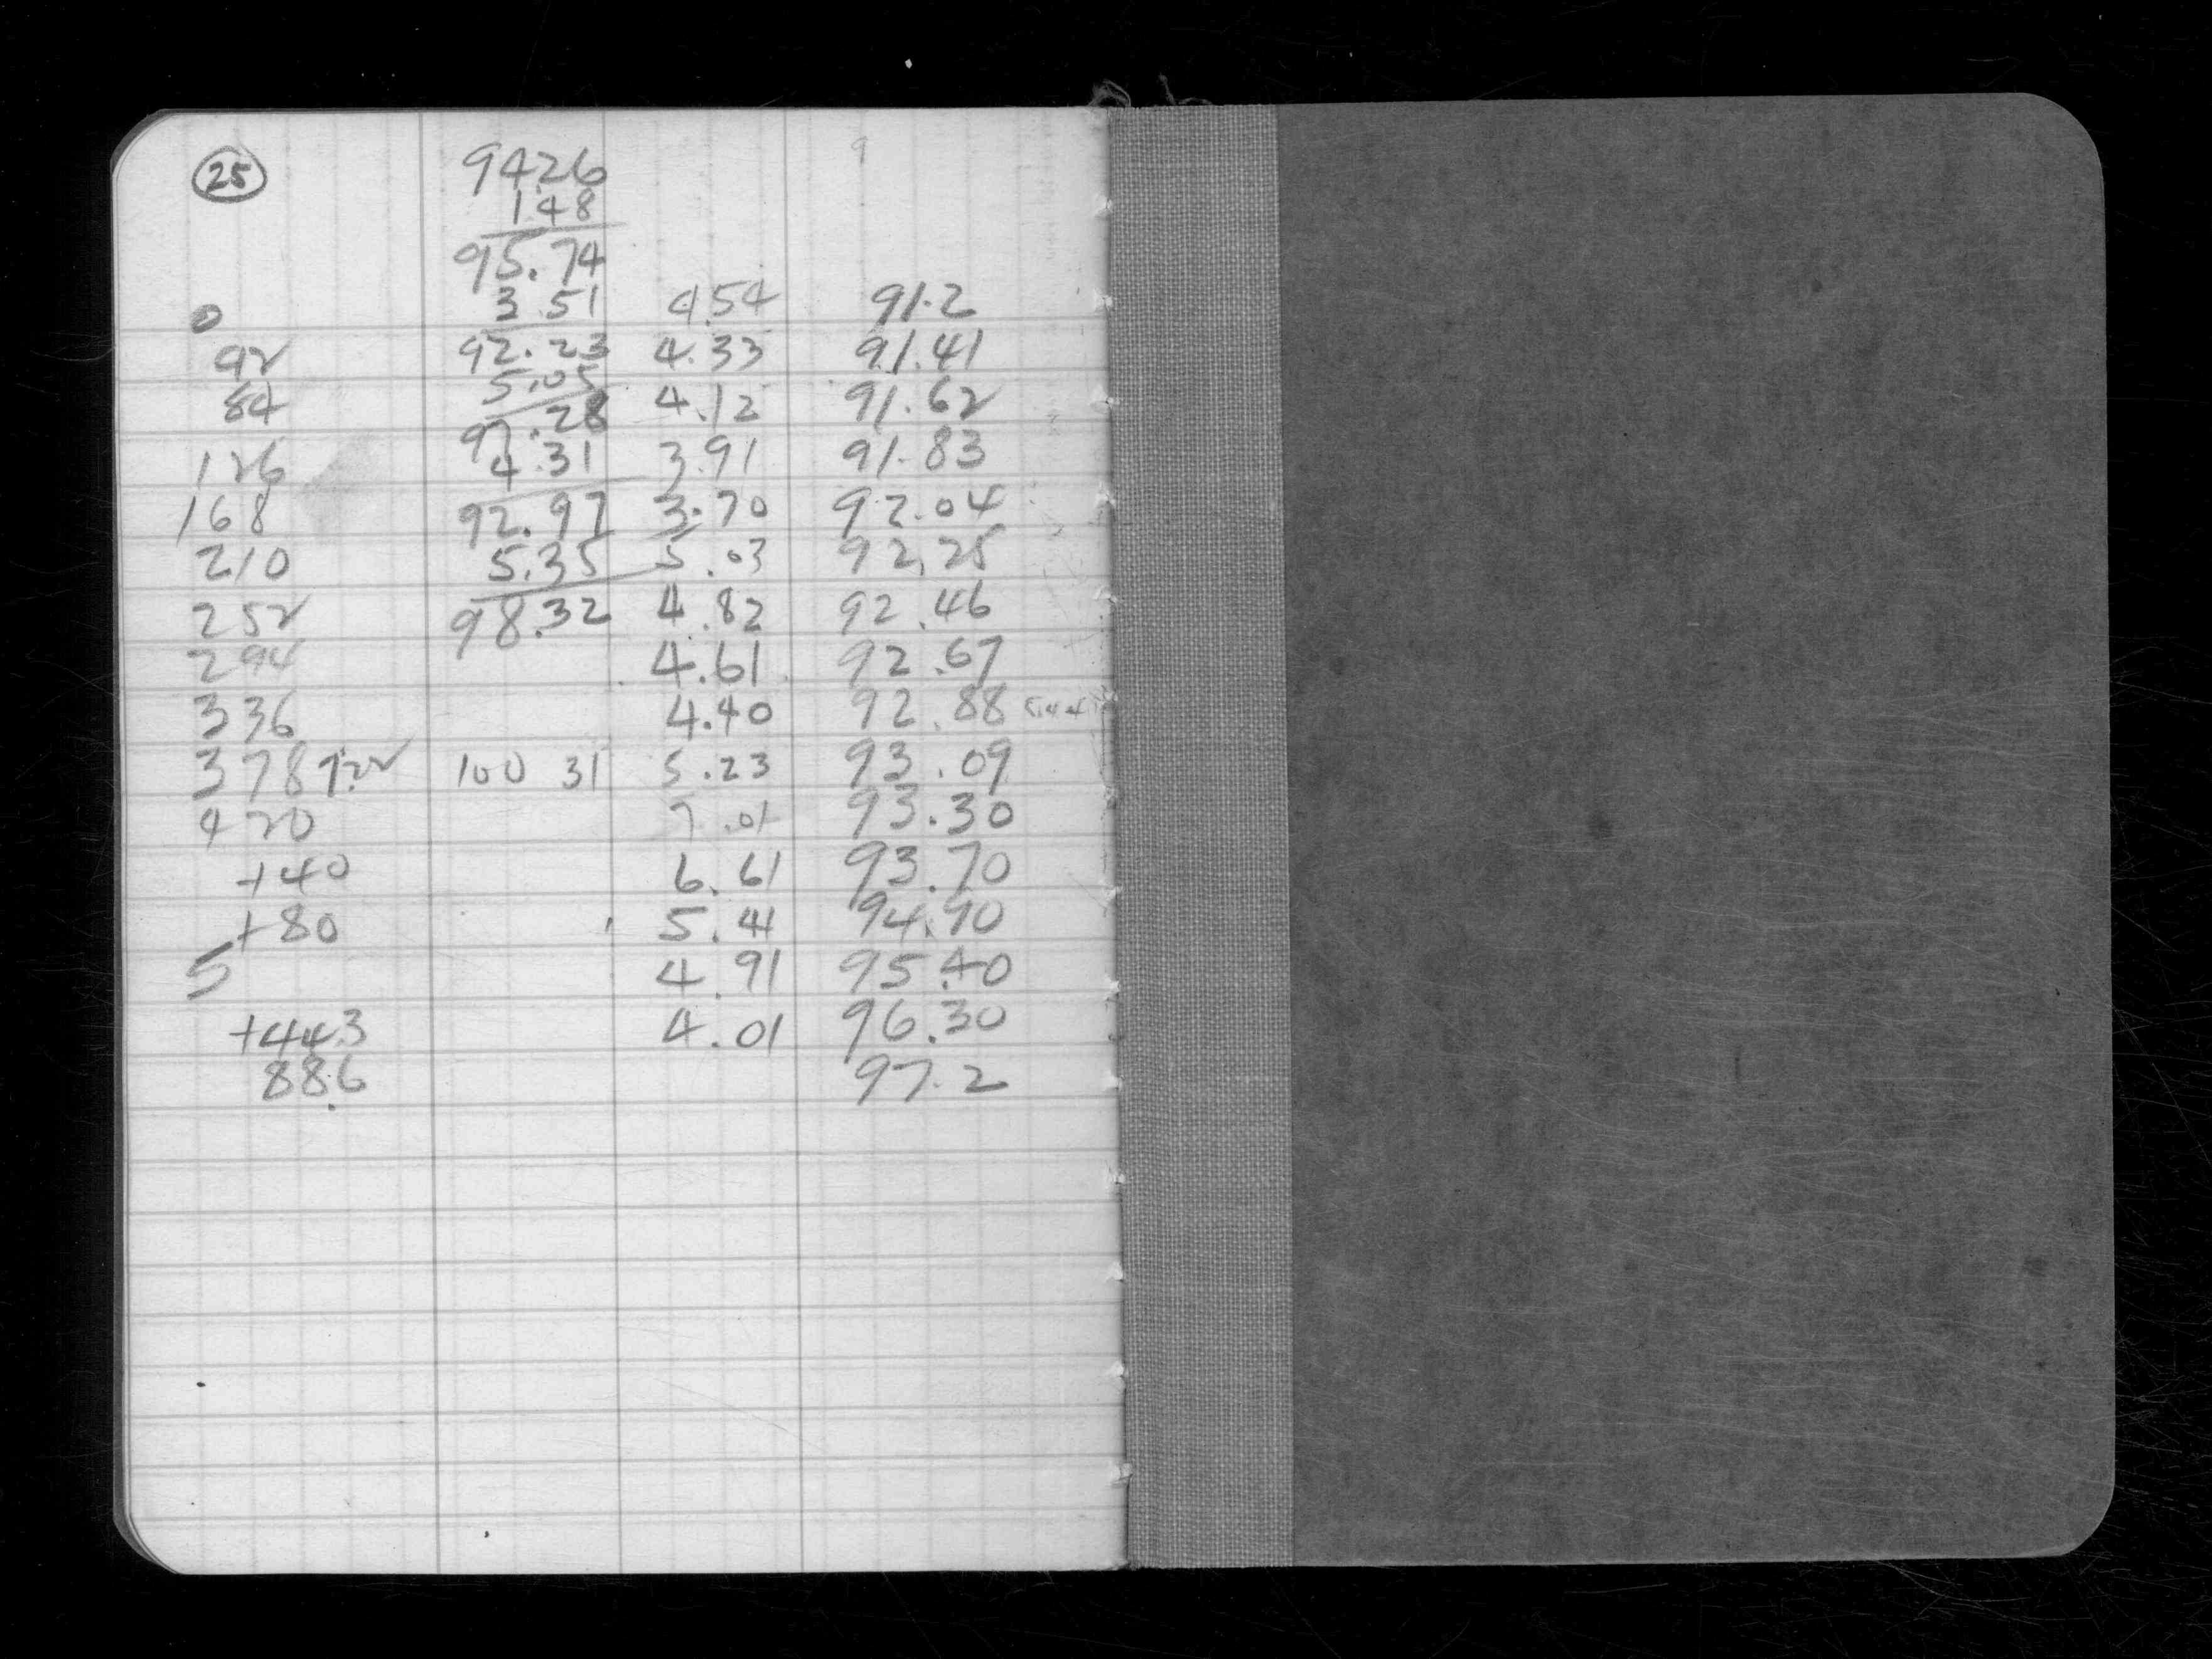 25 9426 9
1.48
95.74
0 3.51 4.54 91.2
92 92.23 4.33 91.41
5.05
84 97.28 4.12 91.62
126 4.31 3.91 91.83
168 92.97 3.70 92.04
210 5.35 5.03 92.25
252 98.32 4.82 92.46
294 4.61 92.67
336 4.40 92.88
378 7.22 100 31 5.23 93.09
420 7.01 93.30
+40 6.61 93.70
+80 5.41 94.90
5 4.91 95.40
+44.3 4.01 96.30
88.6 97.2